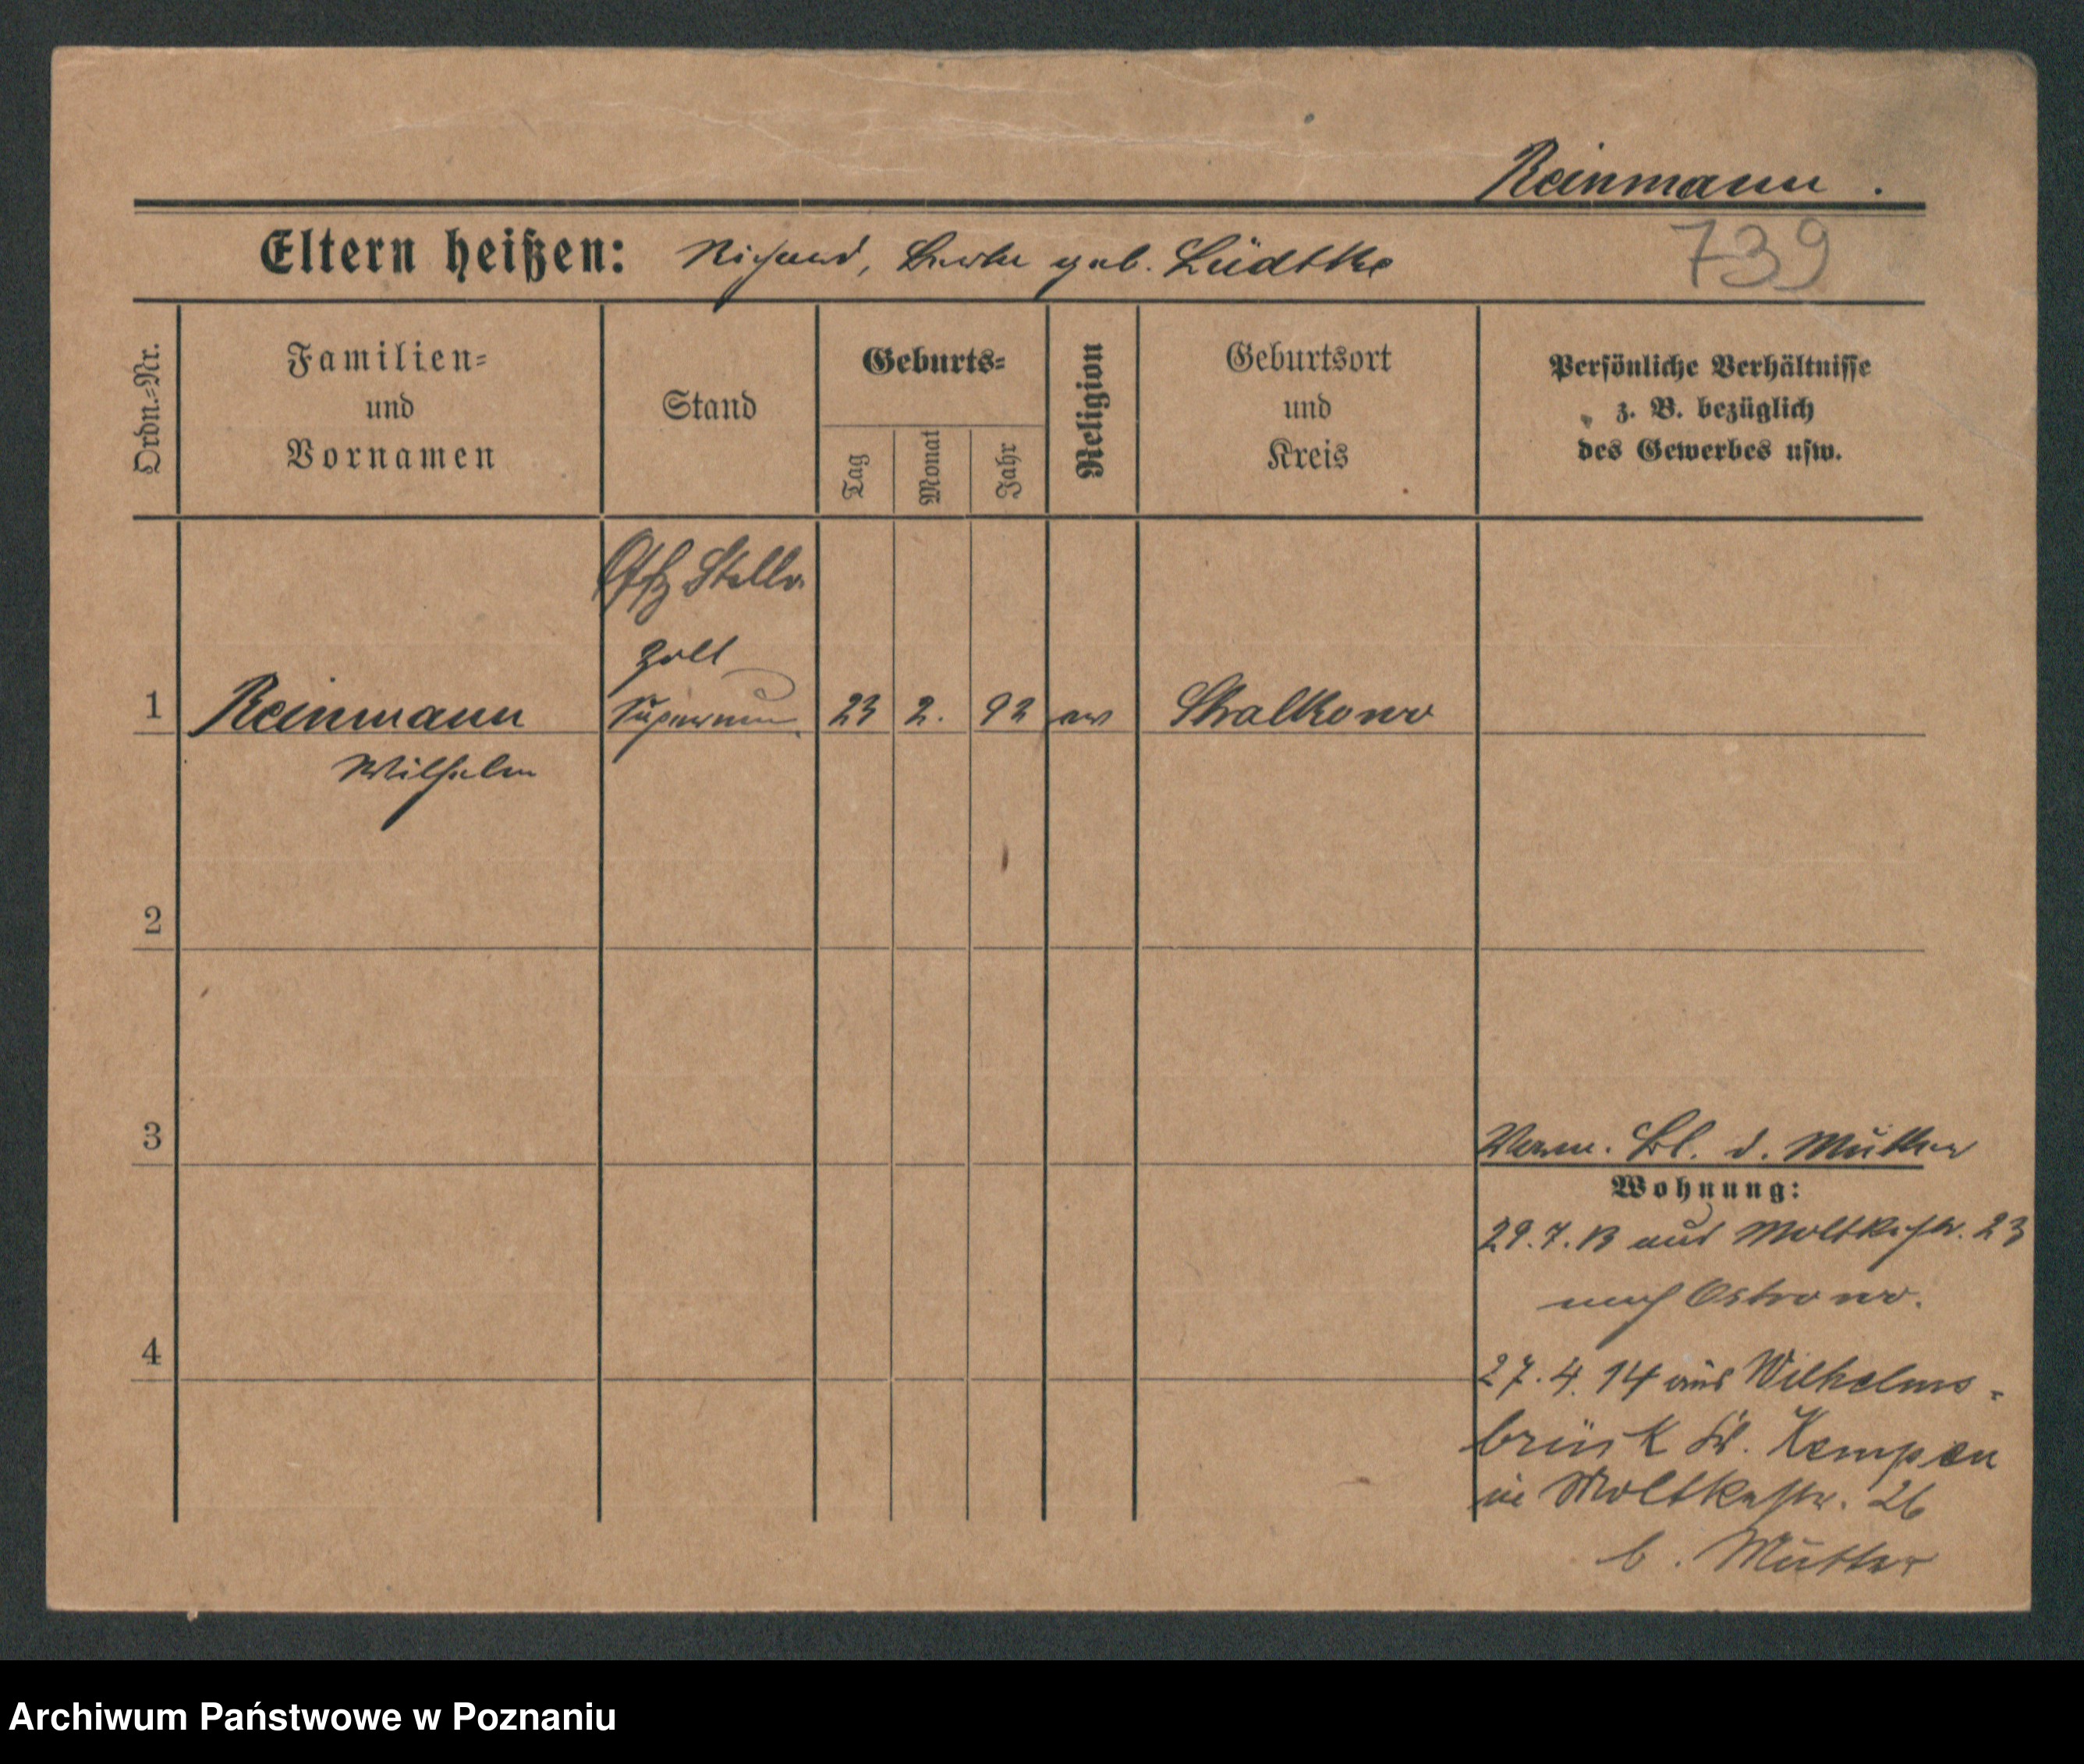 Reinmann.
Eltern heißen: Richard, geb. Lüdtke
739
Ordn.-Nr.
Familien-
und
Vornamen
Stand
Geburts-
Tag
Monat
Jahr
Religion
Geburtsort
und
Kreis
Persönliche Verhältnisse
z. B. bezüglich
des Gewerbes usw.
Offz Stellv.
Zoll
1 Reinmann Supernum. 23 2. 92 ev Stralkowo
Wilhelm
2
3
Verm. Bl. d. Mutter
Wohnung:
29.7.13 aus Moltkestr. 23
nach Ostrowo.
4
27.4.14 aus Wilhelms-
brück Kr. Kempen
in Moltkestr. 26
b. Mutter
Archiwum Państwowe w Poznaniu